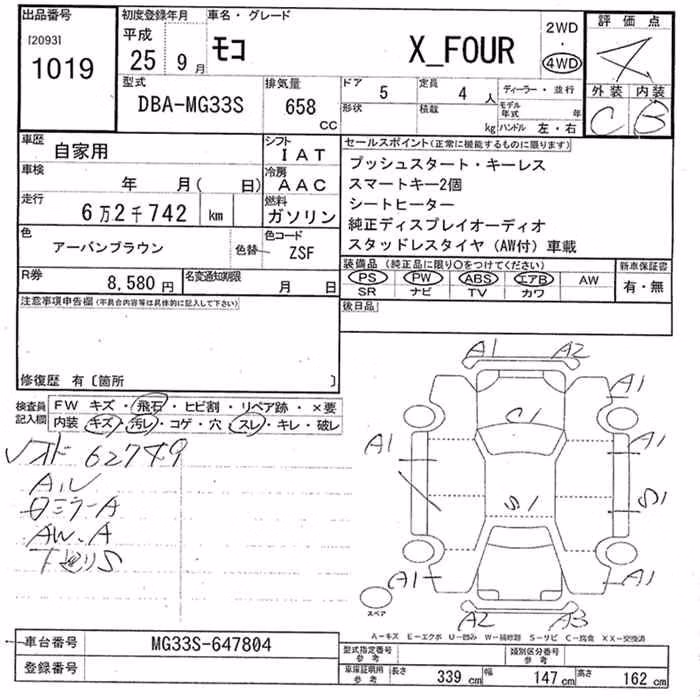 出品番号
[2093]
1019
初度登録年月
平成
25 9月
車名・グレード
モコ X_FOUR
2WD
・
4WD
評価点
外装 内装
C B
型式
DBA-MG33S
排気量
658
CC
ドア 5
定員 4 人
ディーラー・並行
形状
積載 kg
モデル年式 年
ハンドル 左・右
車歴
自家用
シフト
IAT
車検
年 月( 日)
冷房
AAC
走行
6万2千742 km
燃料
ガソリン
色
アーバンブラウン
色替
色コード
ZSF
R券
8,580円
名変通知期限
月 日
セールスポイント(正常に機能するものに限ります)
プッシュスタート・キーレス
スマートキー2個
シートヒーター
純正ディスプレイオーディオ
スタッドレスタイヤ(AW付)車載
装備品(純正品に限り〇をつけてください)
PS PW ABS エアB AW
SR ナビ TV カワ
新車保証書
有・無
後日品
注意事項申告欄(不具合内容等は具体的に記入して下さい)
修復歴 有〔箇所 〕
検査員
記入欄
FW キズ・飛石・ヒビ割・リペア跡・×要
内装 キズ・汚レ・コゲ・穴・スレ・キレ・破レ
62749
AW.A
A1 A2
A1
C1
A1 A1
S1 S1
A1 A1
A2 A3
スペア
A-キズ E-エクボ U-凹み W-補修跡 S-サビ C-腐食 XX-交換済
車台番号
MG33S-647804
登録番号
型式指定番号
参考
類別区分番号
参考
車庫証明用
参考
長さ 339 cm 幅 147 cm 高さ 162 cm